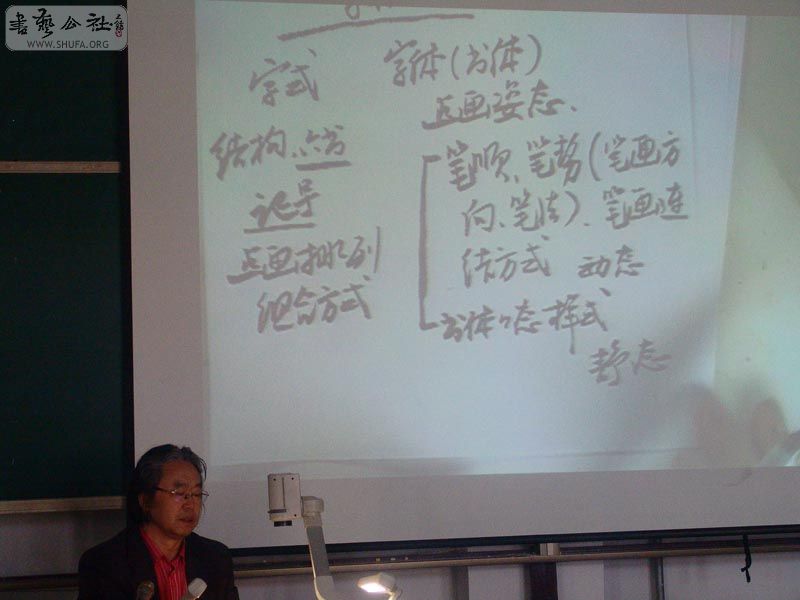 書藝公社
WWW.SHUFA.ORG
字式
结构、六书
点画排列
组合方式
字体(书体)
点画姿态、
笔顺、笔势(笔画方
向、笔法)、笔画连
结方式 动态
书体个态样式
静态